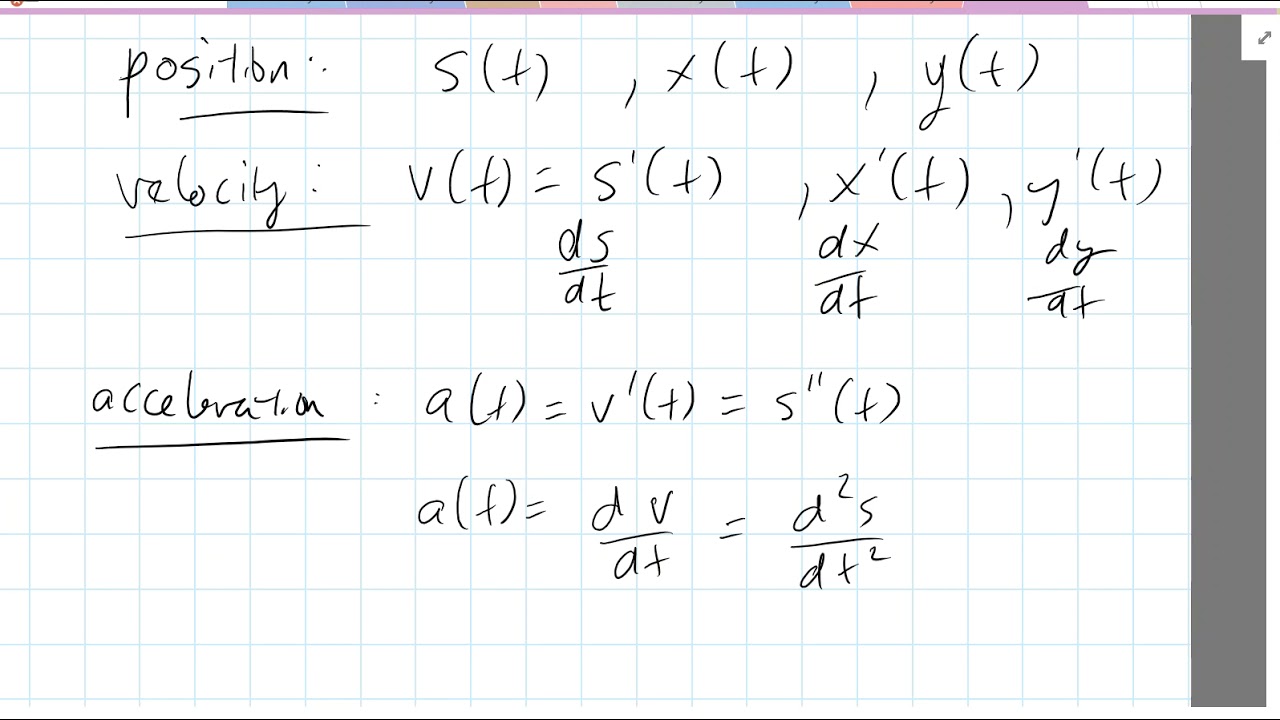 position: s(t) , x(t) , y(t)
velocity: v(t) = s'(t) , x'(t) , y'(t)
ds/dt dx/dt dy/dt
acceleration : a(t) = v'(t) = s''(t)
a(t) = dv/dt = d²s/dt²